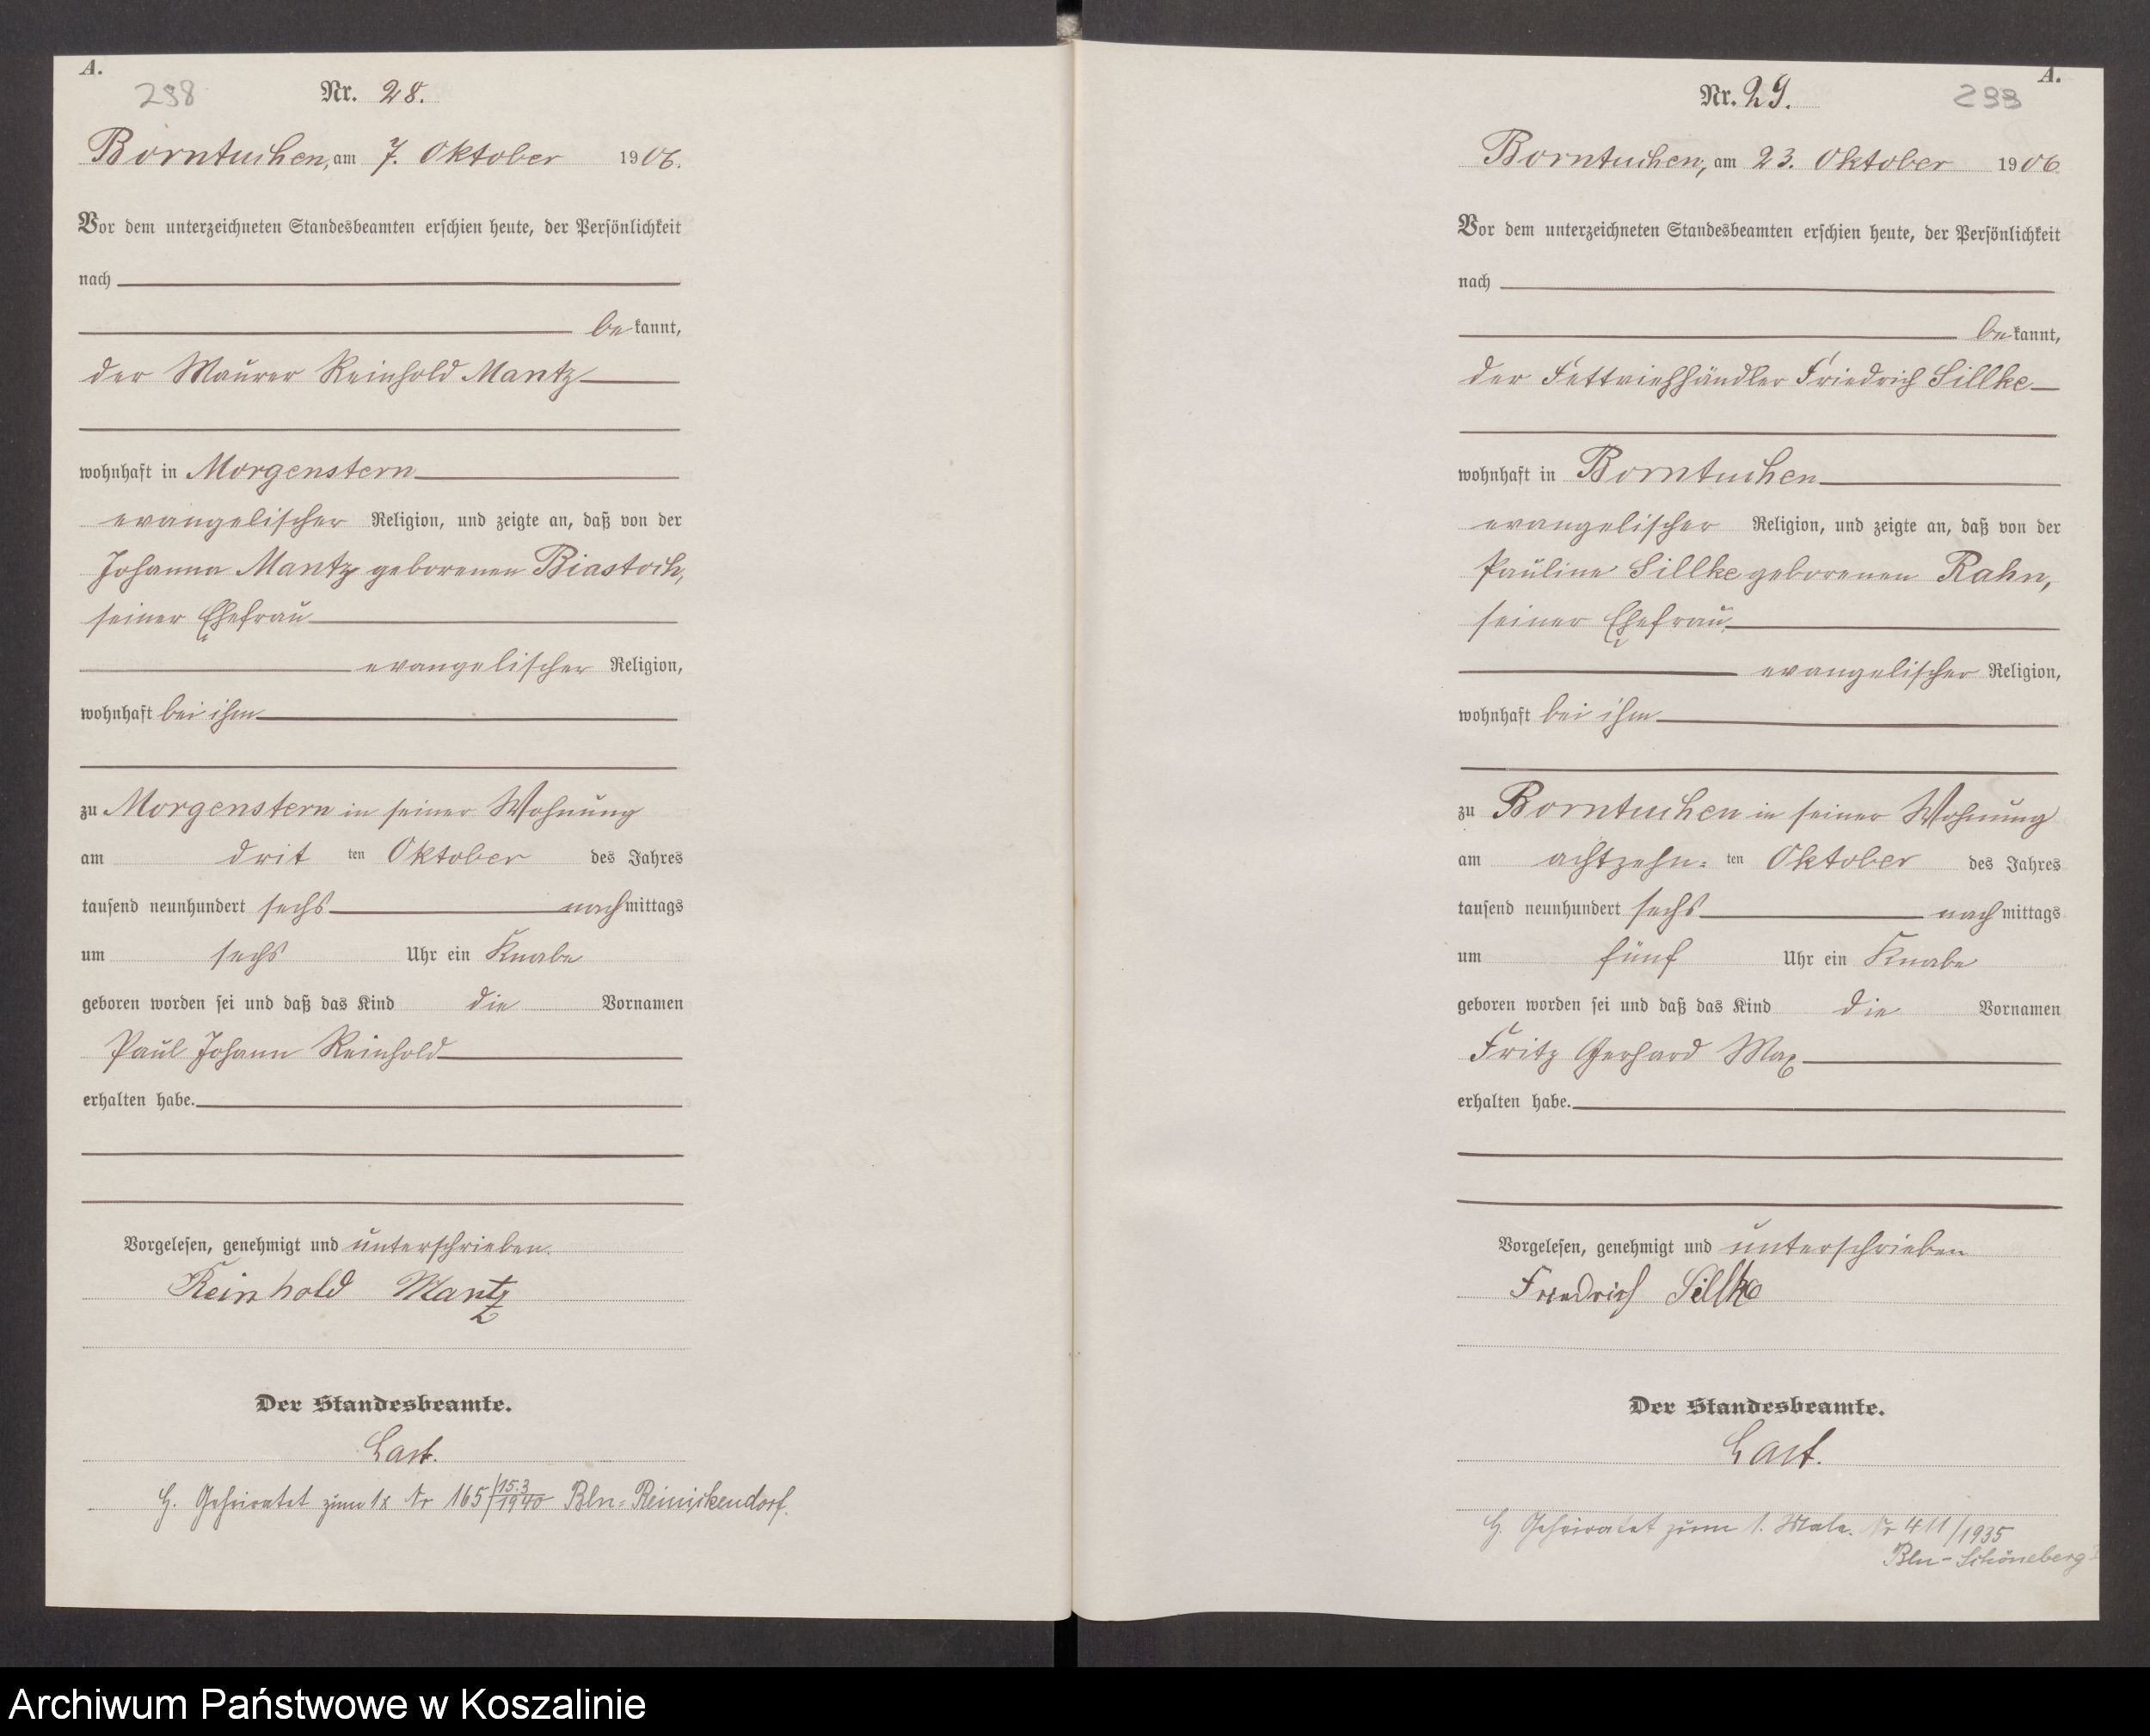 A.
298
Nr. 28.
Borntuchen, am 7. Oktober 1906.
Vor dem unterzeichneten Standesbeamten erschien heute, der Persönlichkeit
nach
bekannt,
der Maurer Reinhold Mantz
wohnhaft in Morgenstern
evangelischer Religion, und zeigte an, daß von der
Johanna Mantz geborenen Biastoch,
seiner Ehefrau
evangelischer Religion,
wohnhaft bei ihm
zu Morgenstern in seiner Wohnung
am dritten Oktober des Jahres
tausend neunhundert sechs nachmittags
um sechs Uhr ein Knabe
geboren worden sei und daß das Kind die Vornamen
Paul Johann Reinhold
erhalten habe.
Vorgelesen, genehmigt und unterschrieben.
Reinhold Mantz
Der Standesbeamte.
Last.
H. Geheiratet zum 1x Nr 165/15.3 1940 Bln-Reinickendorf.
A.
299
Nr. 29.
Borntuchen, am 23. Oktober 1906
Vor dem unterzeichneten Standesbeamten erschien heute, der Persönlichkeit
nach
bekannt,
der Fettviehhändler Friedrich Sillke
wohnhaft in Borntuchen
evangelischer Religion, und zeigte an, daß von der
Pauline Sillke geborenen Rahn,
seiner Ehefrau
evangelischer Religion,
wohnhaft bei ihm
zu Borntuchen in seiner Wohnung
am achtzehn-ten Oktober des Jahres
tausend neunhundert sechs nachmittags
um fünf Uhr ein Knabe
geboren worden sei und daß das Kind die Vornamen
Fritz Gerhard Max
erhalten habe.
Vorgelesen, genehmigt und unterschrieben
Friedrich Sillke
Der Standesbeamte.
Last.
H. Geheiratet zum 1. Male. Nr 411/1935
Bln-Schöneberg
Archiwum Państwowe w Koszalinie